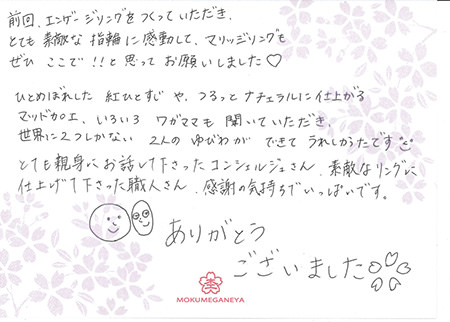 前回、エンゲージリングをつくっていただき、
とても 素敵な 指輪に感動して、マリッジリングも
ぜひ ここで!!と思って お願いしました♡
ひとめぼれした 紅ひとすじ や、つるっと ナチュラルに仕上がる
マッド加工、いろいろ ワガママも 聞いていただき、
世界に2つしかない 2人の ゆびわが できて うれしかったです
とても親身にお話して下さったコンシェルジュさん、素敵なリングに
仕上げて下さった職人さん、感謝の気持ちでいっぱいです。
ありがとう
ございました
MOKUMEGANEYA